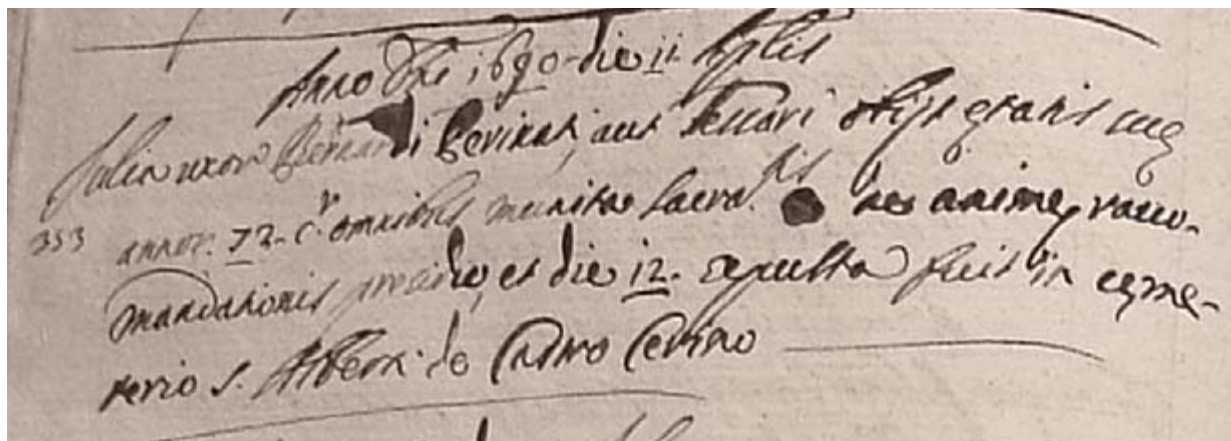 Anno Dñi 1690 die 11 Aplis
Julia uxor Bernardi Cerinat, aut obijt etatis sue
353 annor. 72. cr. omnibus munita Sacra.tis ac anime racco-
mandationis et die 12. sepulta fuit in ceme-
terio S. Alberti de Castro Cerino